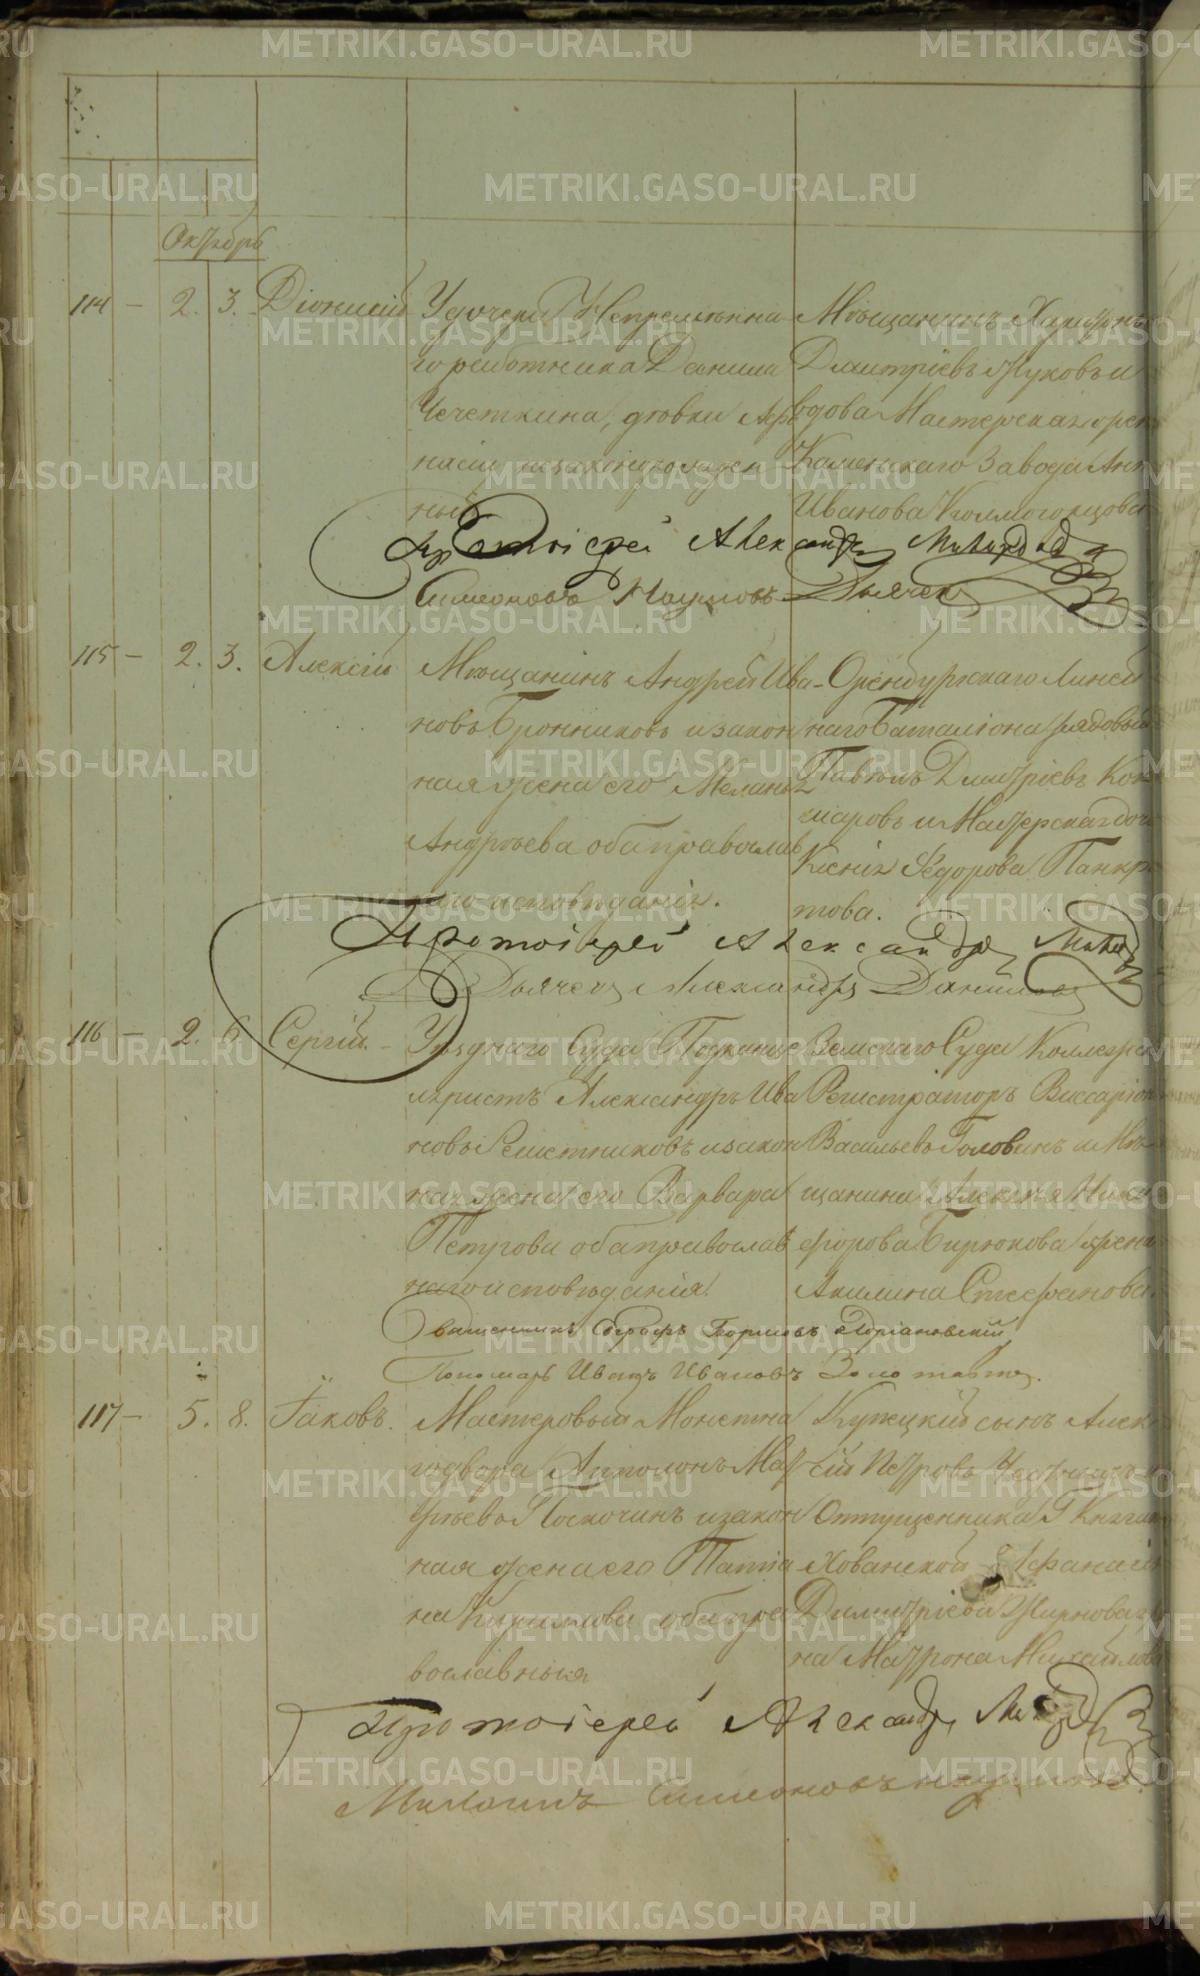 Октябрь
114 – 2. 3. Діонисій
У дочери Непремѣнна
го работника Данила
Чечеткина, дѣвки Аѳа
насіи, незаконнорожден
ный
Мѣщанинъ Харитонъ
Дмитріевъ Жуковъ и
вдова Мастерская жен
Каменскаго Завода Анн
Иванова Колмогорцова
Протоіерей Александръ
Симеоновъ Наумовъ Дьячекъ
115 – 2. 3. Алексій
Мѣщанинъ Андрей Ива
новъ Бронниковъ и закон
ная жена его Меланья
Андреева оба православ
наго исповѣданія.
Оренбургскаго Линей
наго Баталіона рядовый
Павелъ Дмитріевъ Кок
шаровъ и Мастерская доч
Ксенія Ѳедорова Панкр
това.
Протоіерей Александръ
Дьячекъ Александръ Даниловъ
116 – 2. 6 Сергій.
Уѣзднаго Суда Подканце
ляристъ Александръ Ива
новъ Решетниковъ и закон
ная жена его Варвара
Петрова оба православ
наго исповѣданія.
Земскаго Суда Коллежск
Регистраторъ Виссаріон
Васильевъ Головинъ и Мѣ
щанина Алексѣя Ники
форова Бирюкова жена
Акилина Стефанова.
Священникъ Стефанъ
Пономарь Иванъ Ивановъ Золотавинъ.
117 – 5. 8. Іаковъ.
Мастеровый Монетна
го двора Апполонъ Мат
ѳѣевъ Поскочинъ и закон
ная жена его Татіа
на Кирилова оба пра
вославныя
Купецкій сынъ Алек
сій Петровъ
Отпущенника Г. Княгин
Хованской Афанасія
Димитріева Жирнова же
на Матрона Михайлова
Протоіерей Александръ
Михаилъ Симеоновъ Наумовъ
METRIKI.GASO-URAL.RU